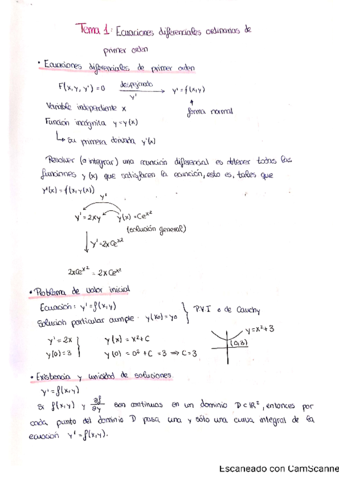 Tema 1: Ecuaciones diferenciales ordinarias de
primer orden
• Ecuaciones diferenciales de primer orden
F(x,y,y')=0 despejando y' y'=f(x,y)
Variable independiente x
forma normal
Función incógnita y=y(x)
↳ su primera derivada y'(x)
Resolver (o integrar) una ecuación diferencial es obtener todas las
funciones y(x) que satisfacen la ecuación, esto es, tales que
y'(x)=f(x,y(x))
y'
y'=2xy y(x)=Ce^x²
(solución general)
y'=2xCe^x²
2xCe^x² = 2xCe^x²
• Problema de valor inicial
Ecuación: y'=f(x,y)
Solución particular cumple: y(x0)=y0
PVI o de Cauchy
y'=2x y(x)=x²+C
y=x²+3
y(0)=3 y(0)=0²+C=3 ⇒ C=3
(0,3)
• Existencia y unicidad de soluciones
y'=f(x,y)
Si f(x,y) y ∂f/∂y son continuas en un dominio D⊂ℝ², entonces por
cada punto del dominio D pasa una y sólo una curva integral de la
ecuación y'=f(x,y).
Escaneado con CamScanne